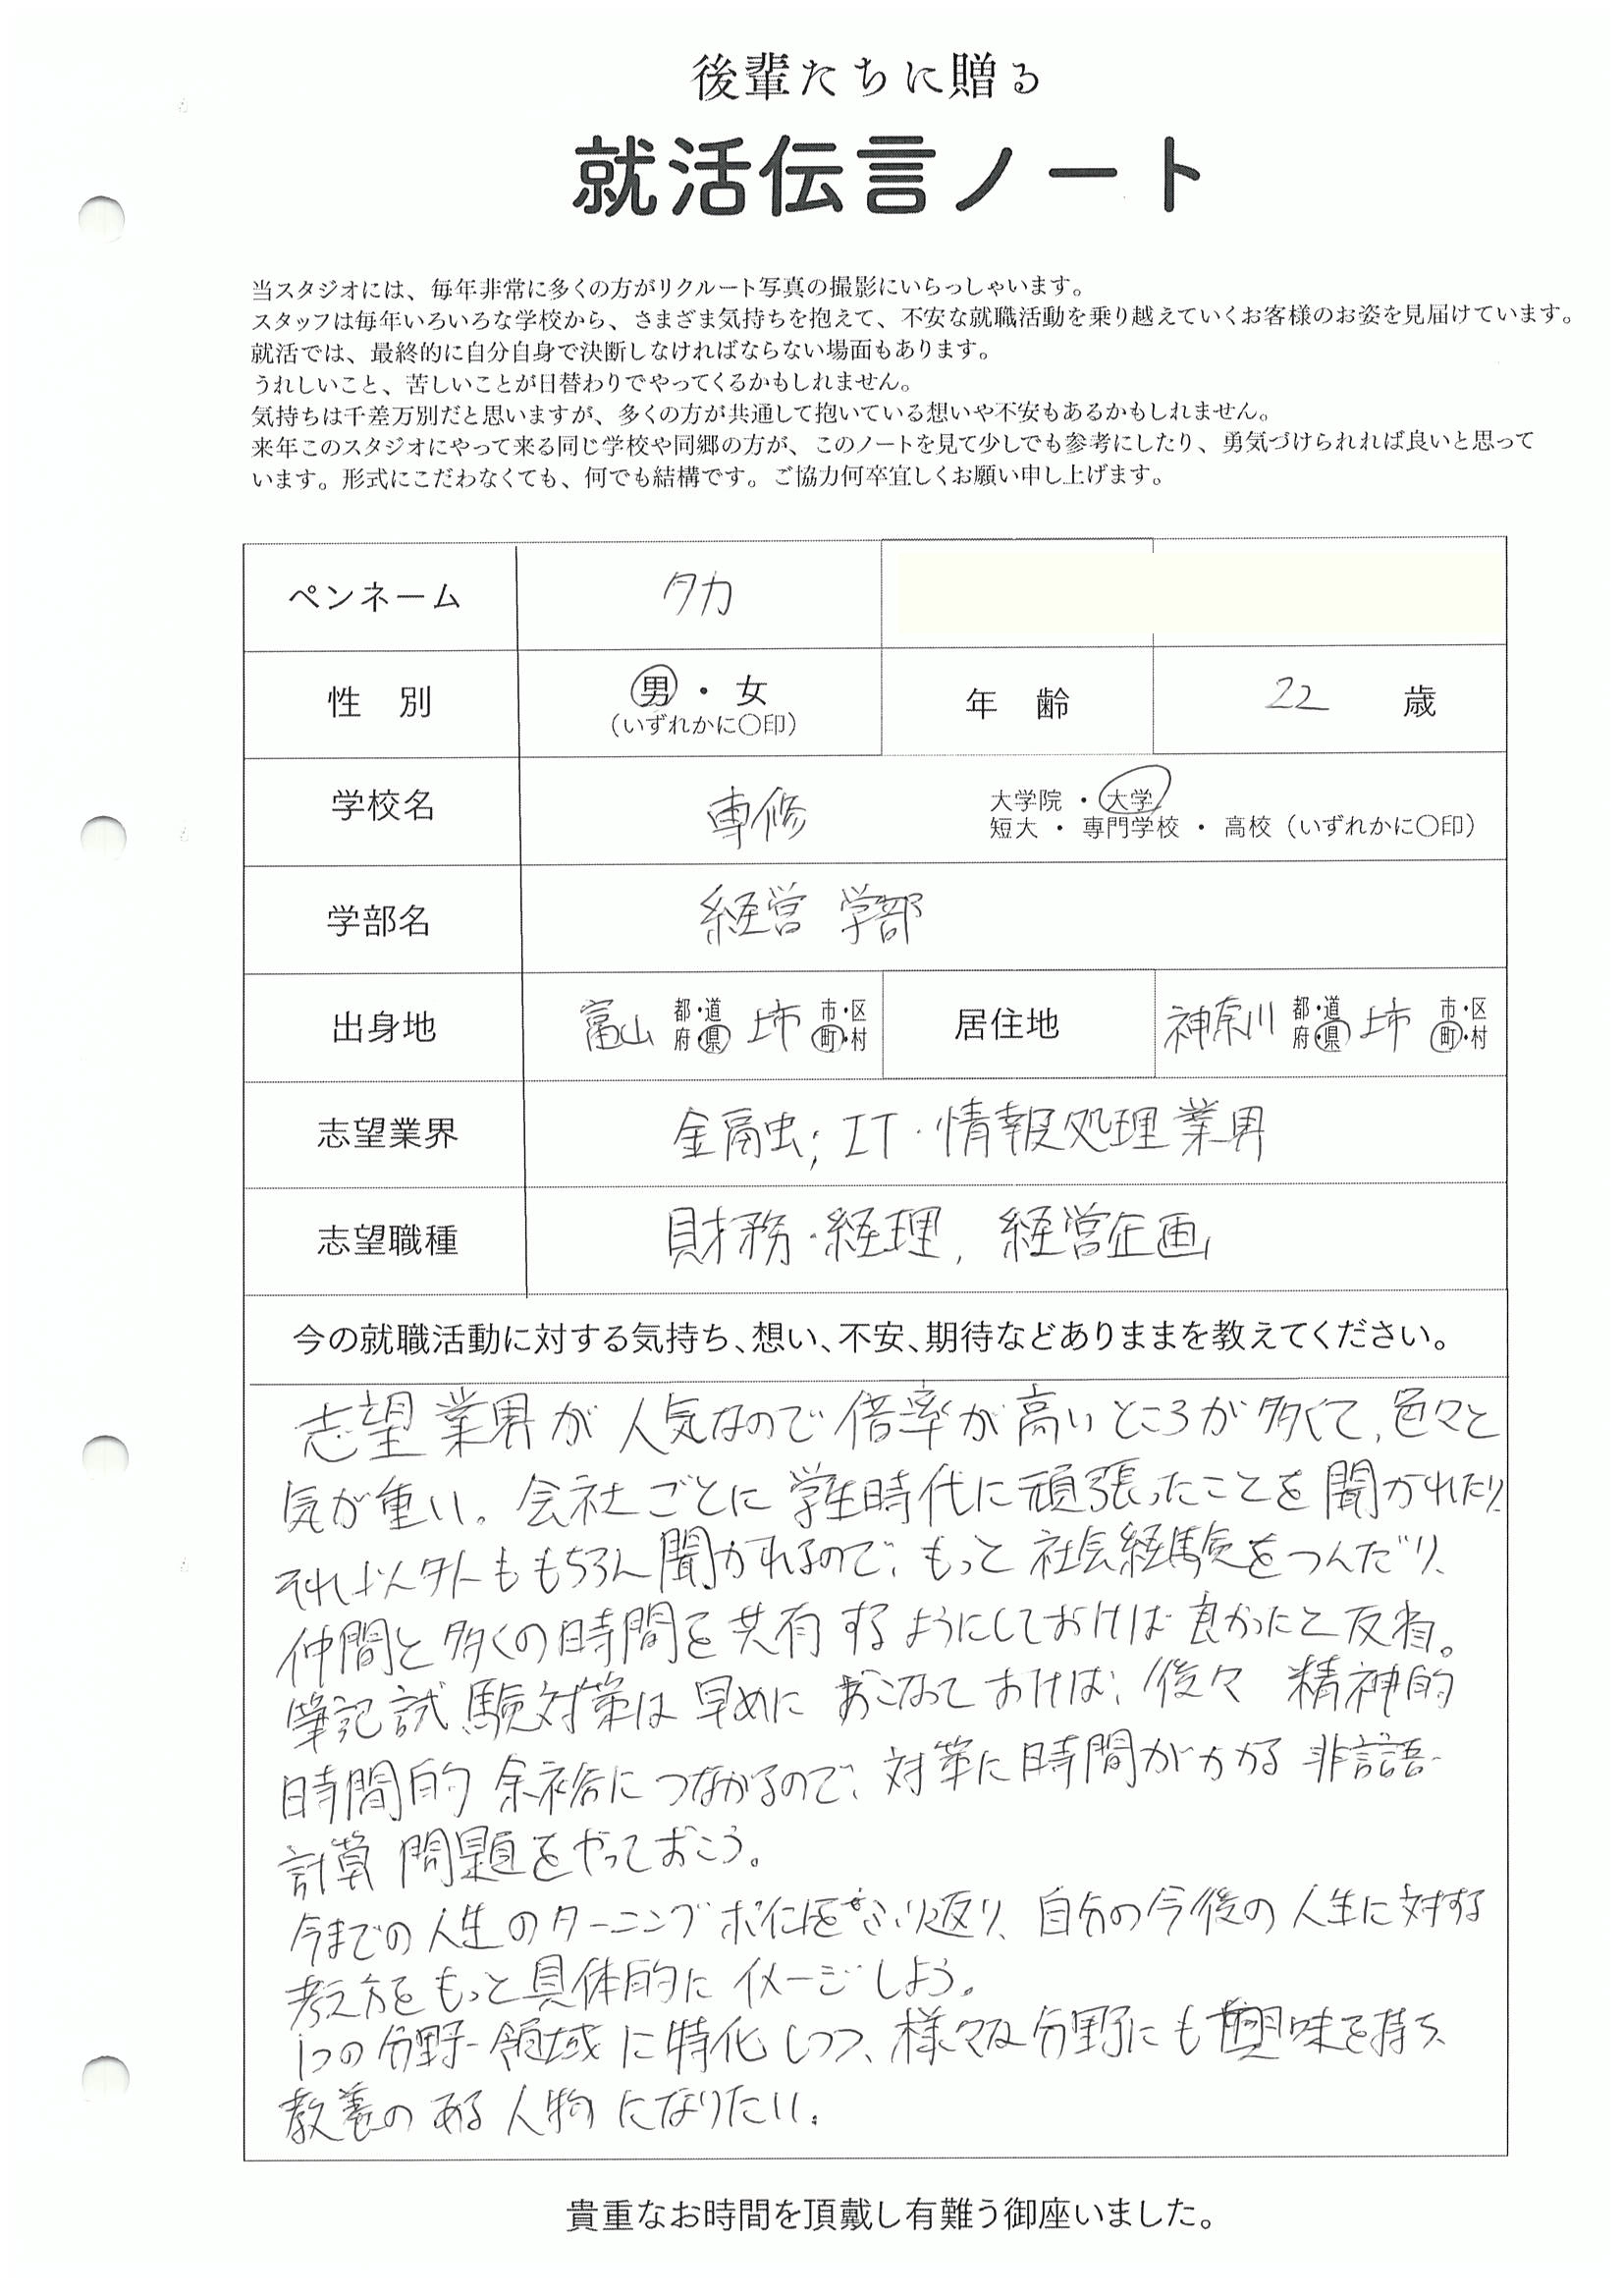 後輩たちに贈る
就活伝言ノート
当スタジオには、毎年非常に多くの方がリクルート写真の撮影にいらっしゃいます。
スタッフは毎年いろいろな学校から、さまざま気持ちを抱えて、不安な就職活動を乗り越えていくお客様のお姿を見届けています。
就活では、最終的に自分自身で決断しなければならない場面もあります。
うれしいこと、苦しいことが日替わりでやってくるかもしれません。
気持ちは千差万別だと思いますが、多くの方が共通して抱いている想いや不安もあるかもしれません。
来年このスタジオにやって来る同じ学校や同郷の方が、このノートを見て少しでも参考にしたり、勇気づけられれば良いと思って
います。形式にこだわなくても、何でも結構です。ご協力何卒宜しくお願い申し上げます。
ペンネーム タカ
性 別 男・女 年 齢 22 歳
(いずれかに〇印)
学校名 専修 大学院 ・ 大学
短大 ・ 専門学校 ・ 高校 (いずれかに〇印)
学部名 経営 学部
出身地 富山 都・道 府・県 上市 市・区 町・村 居住地 神奈川 都・道 府・県 上市 市・区 町・村
志望業界 金融, IT・情報処理業界
志望職種 財務・経理, 経営企画
今の就職活動に対する気持ち、想い、不安、期待などありままを教えてください。
志望業界が人気なので倍率が高いところが多くて、色々と
気が重い。会社ごとに学生時代に頑張ったことを聞かれたり、
それ以外ももちろん聞かれるので、もっと社会経験をつんだり、
仲間と多くの時間を共有するようにしておけば良かったと反省。
筆記試験対策は早めにおこなっておけば、後々 精神的
時間的 余裕につながるので、対策に時間がかかる 非言語・
計算 問題をやっておこう。
今までの人生のターニングポイントをふり返り、自分の今後の人生に対する
考え方をもっと具体的に イメージしよう。
1つの分野・領域に特化しつつ、様々な分野にも興味を持ち、
教養のある人物になりたい。
貴重なお時間を頂戴し有難う御座いました。